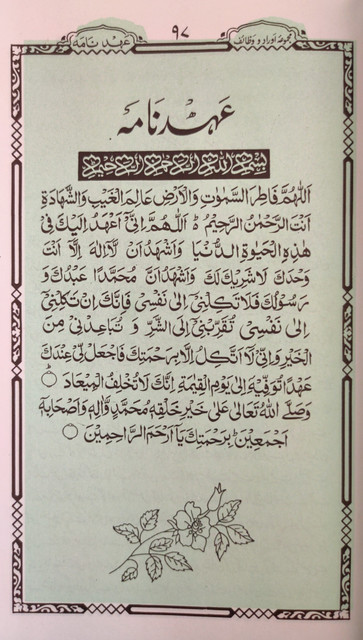 مجموعہ اوراد و وظائف ۹۷ عہد نامہ
عہد نامہ
بسم الله الرحمن الرحيم
اَللّٰهُمَّ فَاطِرَ السَّمٰوٰتِ وَالْاَرْضِ عَالِمَ الْغَيْبِ وَالشَّهَادَةِ
اَنْتَ الرَّحْمٰنُ الرَّحِيْمُ ط اَللّٰهُمَّ اِنِّيْ اَعْهَدُ اِلَيْكَ فِيْ
هٰذِهِ الْحَيٰوةِ الدُّنْيَا وَاَشْهَدُ اَنْ لَّآ اِلٰهَ اِلَّآ اَنْتَ
وَحْدَكَ لَاشَرِيْكَ لَكَ وَاَشْهَدُ اَنَّ مُحَمَّدًا عَبْدُكَ وَ
رَسُوْلُكَ فَلَا تَكِلْنِيْ اِلٰى نَفْسِيْ فَاِنَّكَ اِنْ تَكِلْنِيْ
اِلٰى نَفْسِيْ تُقَرِّبْنِيْ اِلَى الشَّرِّ وَ تُبَاعِدْنِيْ مِنَ
الْخَيْرِ وَاِنِّيْ لَآ اَتَّكِلُ اِلَّا بِرَحْمَتِكَ فَاجْعَلْ لِّيْ عِنْدَكَ
عَهْدًا تُوَفِّيْهِ اِلٰى يَوْمِ الْقِيٰمَةِ اِنَّكَ لَا تُخْلِفُ الْمِيْعَادَ ط
وَصَلَّى اللهُ تَعَالٰى عَلٰى خَيْرِ خَلْقِهٖ مُحَمَّدٍ وَّاٰلِهٖ وَاَصْحَابِهٖ
اَجْمَعِيْنَ ط بِرَحْمَتِكَ يَآ اَرْحَمَ الرَّاحِمِيْنَ